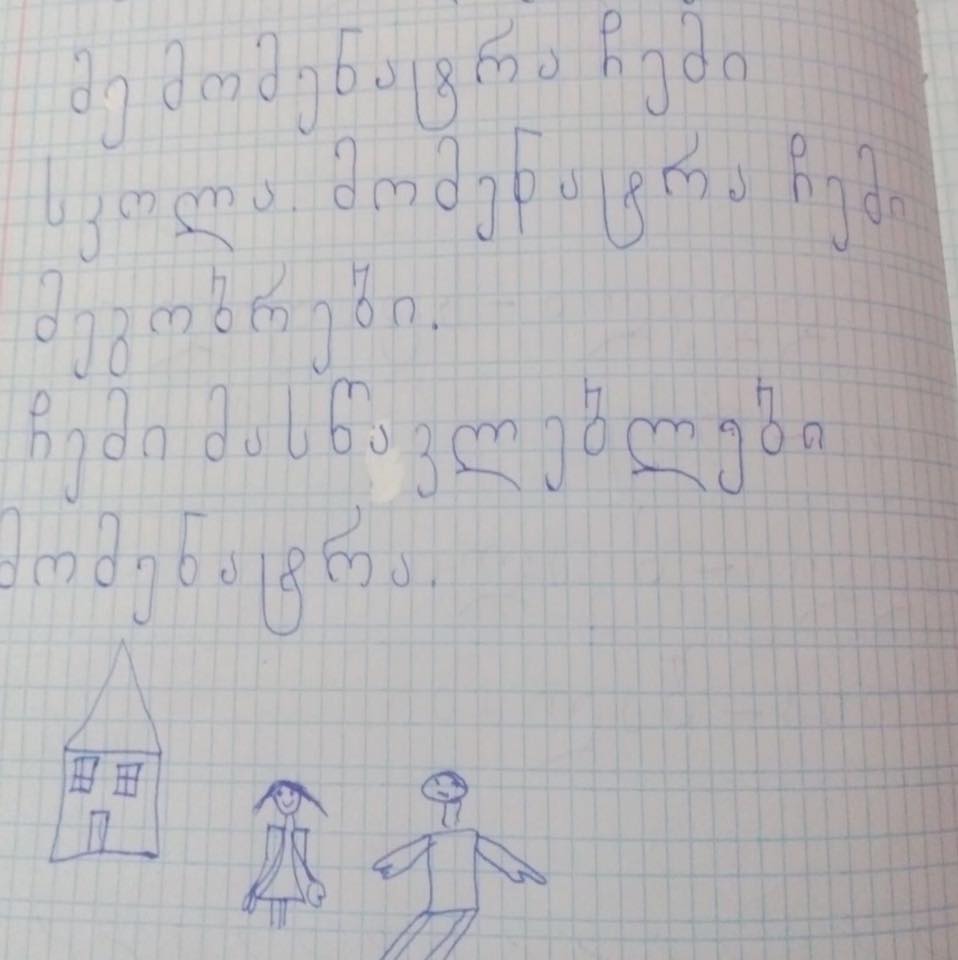 მე მომენატრა ჩემი
სკოლა. მომენატრა ჩემი
მეგობრები.
ჩემი მასწავლებლები
მომენატრა.